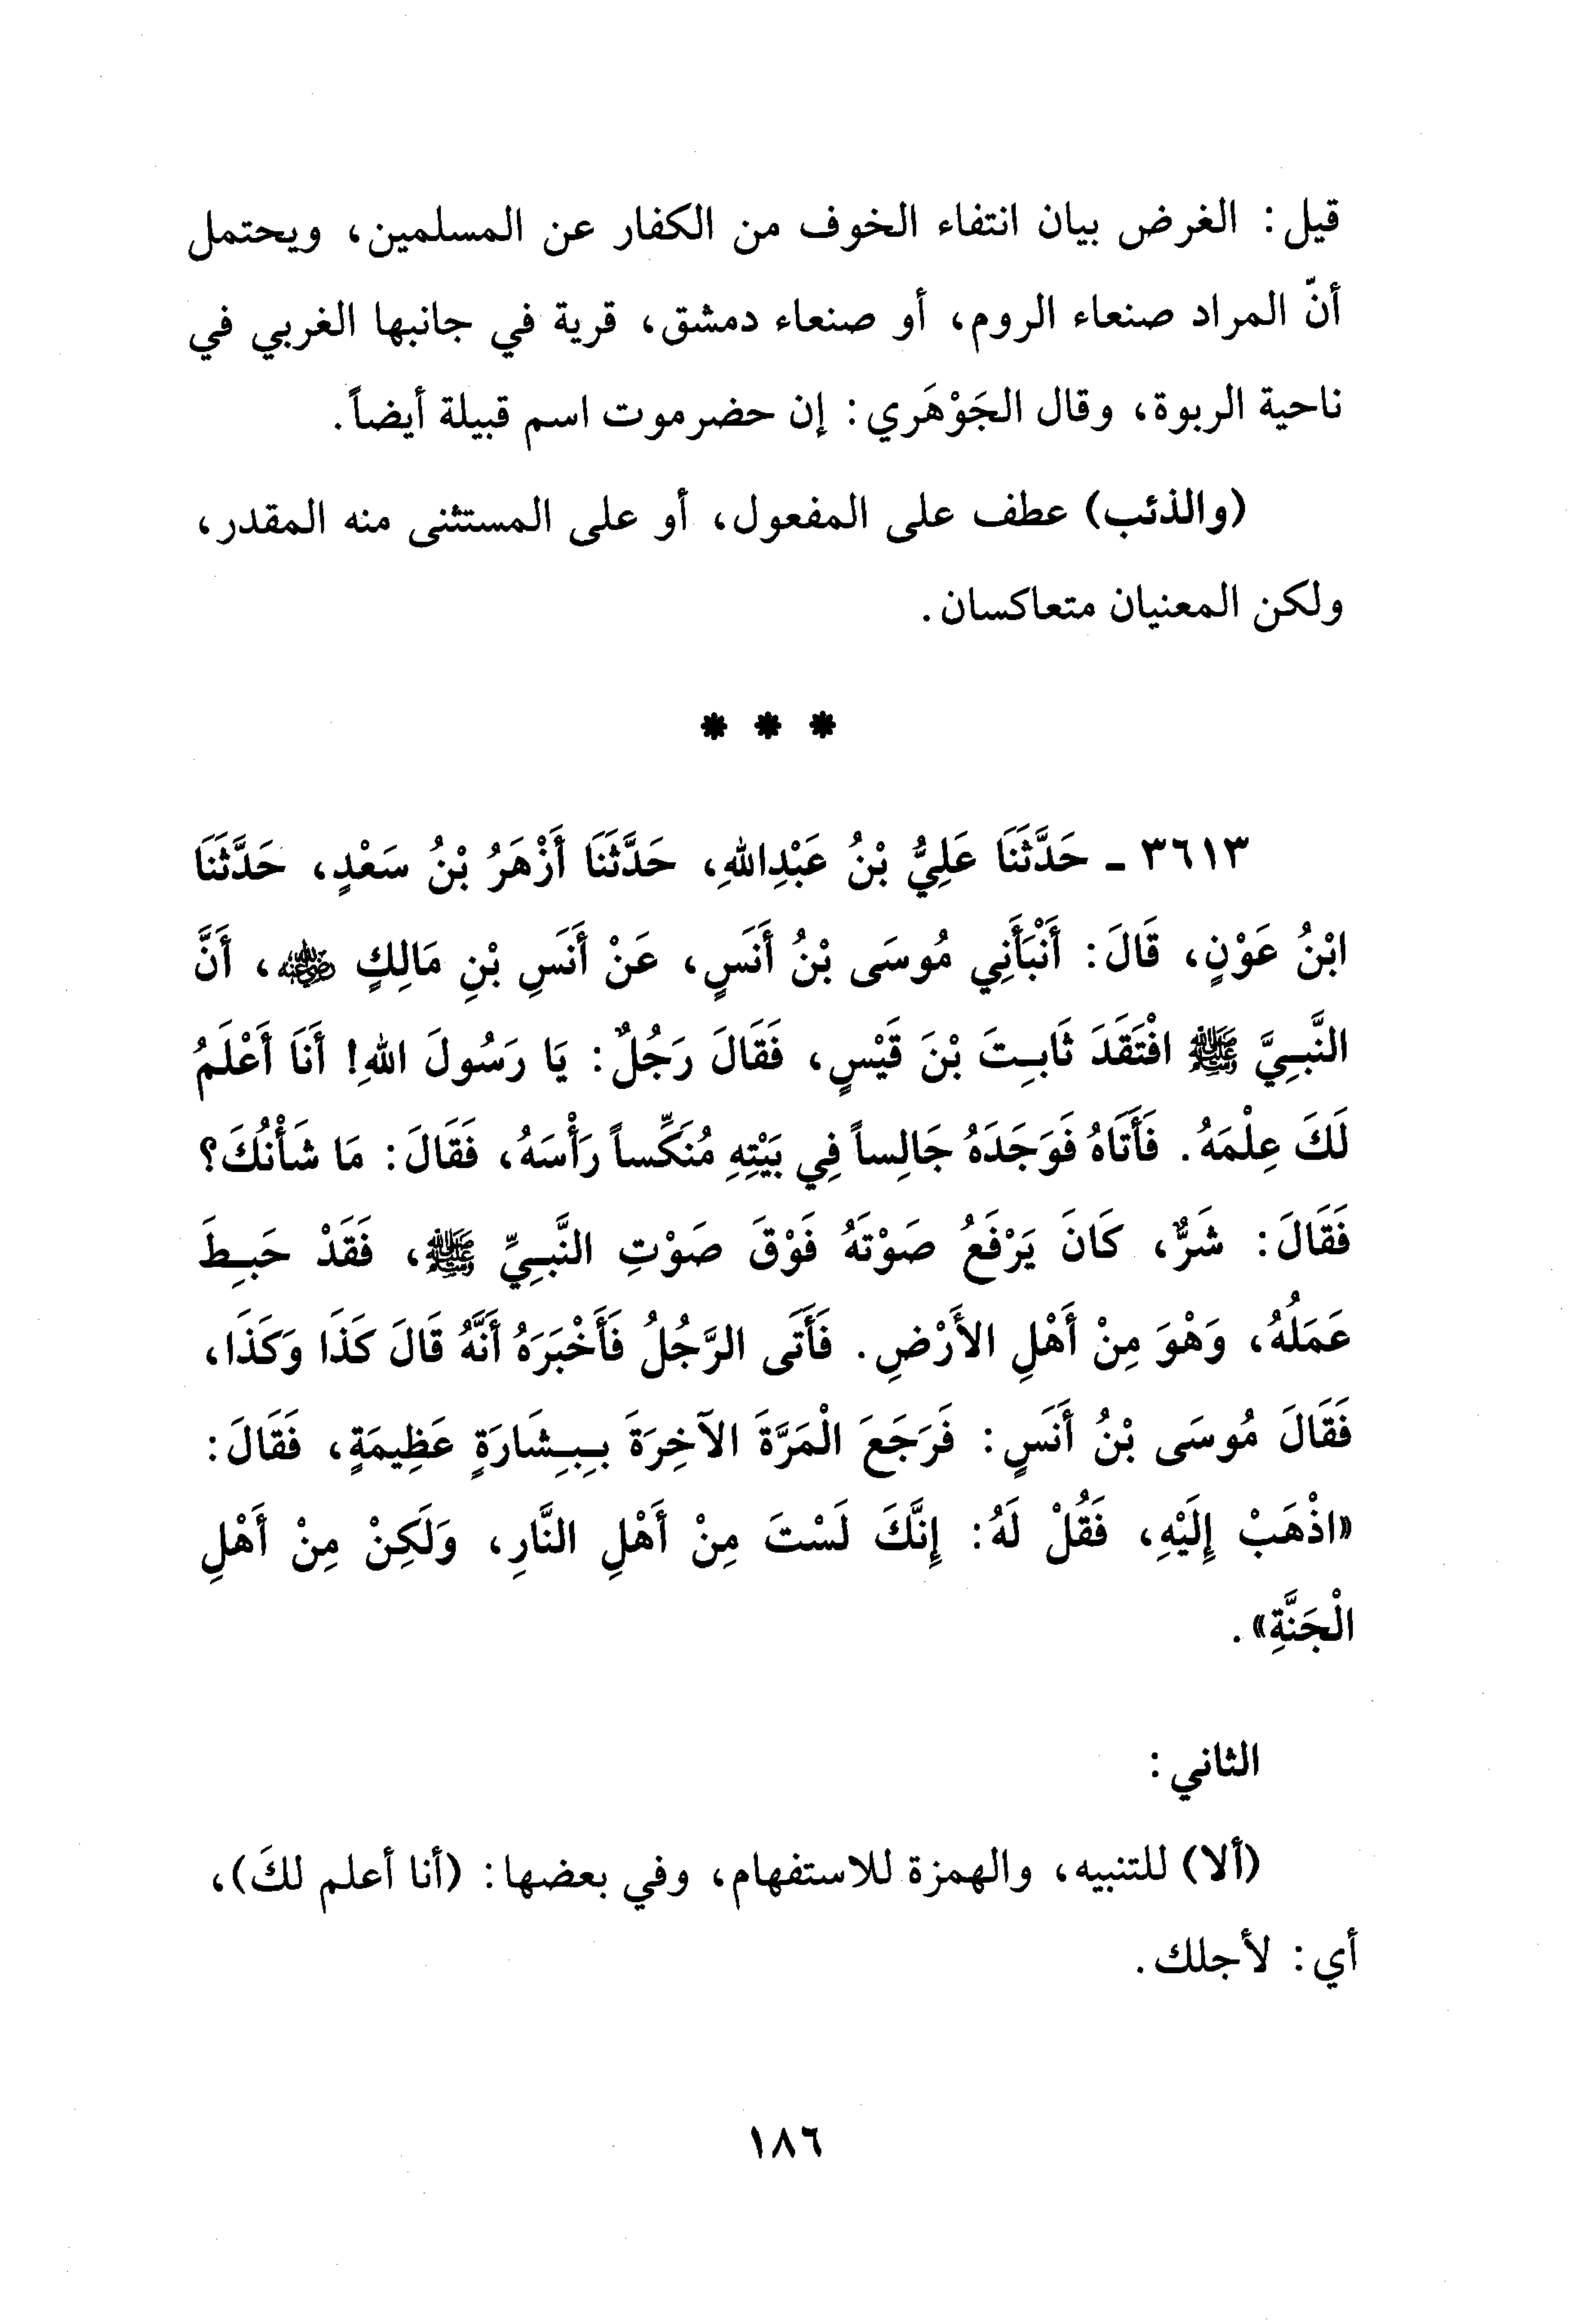 قيل: الغرض بيان انتفاء الخوف من الكفار عن المسلمين، ويحتمل
أنّ المراد صنعاء الروم، أو صنعاء دمشق، قرية في جانبها الغربي في
ناحية الربوة، وقال الجَوْهَري: إن حضرموت اسم قبيلة أيضاً.
(والذئب) عطف على المفعول، أو على المستثنى منه المقدر،
ولكن المعنيان متعاكسان.
* * *
٣٦١٣ - حَدَّثَنَا عَلِيُّ بْنُ عَبْدِاللهِ، حَدَّثَنَا أَزْهَرُ بْنُ سَعْدٍ، حَدَّثَنَا
ابْنُ عَوْنٍ، قَالَ: أَنْبَأَنِي مُوسَى بْنُ أَنَسٍ، عَنْ أَنَسِ بْنِ مَالِكٍ رضي الله عنه، أَنَّ
النَّبِيَّ ﷺ افْتَقَدَ ثَابِتَ بْنَ قَيْسٍ، فَقَالَ رَجُلٌ: يَا رَسُولَ اللهِ! أَنَا أَعْلَمُ
لَكَ عِلْمَهُ. فَأَتَاهُ فَوَجَدَهُ جَالِساً فِي بَيْتِهِ مُنَكِّساً رَأْسَهُ، فَقَالَ: مَا شَأْنُكَ؟
فَقَالَ: شَرٌّ، كَانَ يَرْفَعُ صَوْتَهُ فَوْقَ صَوْتِ النَّبِيِّ ﷺ، فَقَدْ حَبِطَ
عَمَلُهُ، وَهْوَ مِنْ أَهْلِ الأَرْضِ. فَأَتَى الرَّجُلُ فَأَخْبَرَهُ أَنَّهُ قَالَ كَذَا وَكَذَا،
فَقَالَ مُوسَى بْنُ أَنَسٍ: فَرَجَعَ الْمَرَّةَ الآخِرَةَ بِبِشَارَةٍ عَظِيمَةٍ، فَقَالَ:
«اذْهَبْ إِلَيْهِ، فَقُلْ لَهُ: إِنَّكَ لَسْتَ مِنْ أَهْلِ النَّارِ، وَلَكِنْ مِنْ أَهْلِ
الْجَنَّةِ».
الثاني:
(ألا) للتنبيه، والهمزة للاستفهام، وفي بعضها: (أنا أعلم لكَ)،
أي: لأجلك.
١٨٦